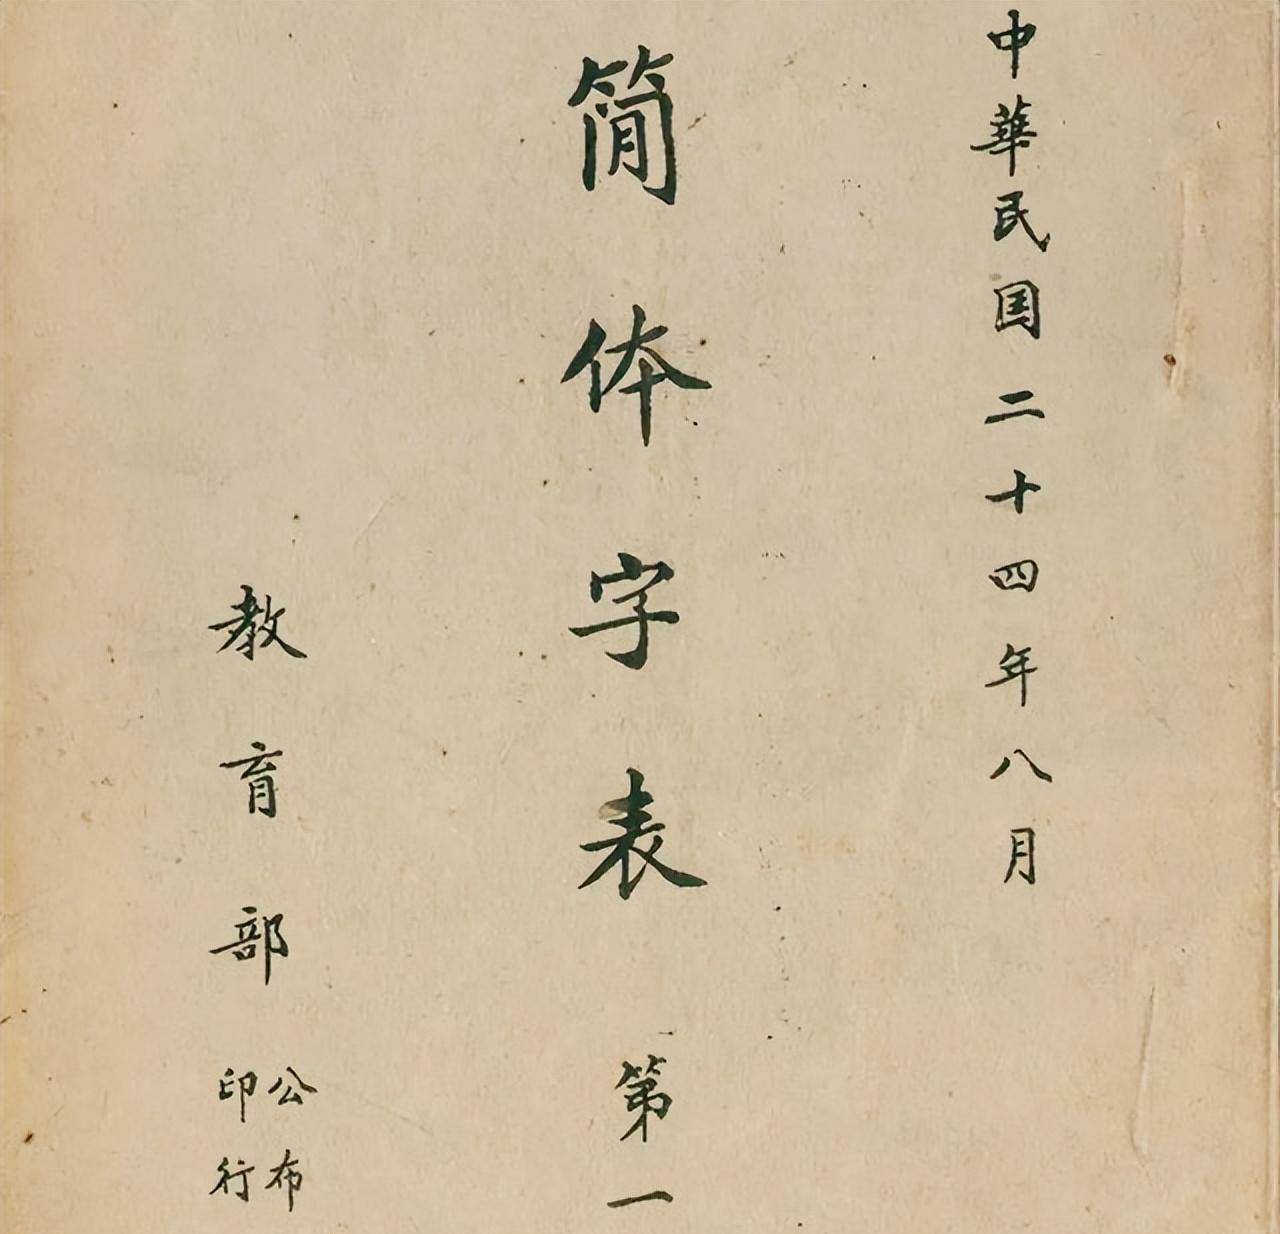 中華民国二十四年八月
简体字表 第一
教育部
公布
印行